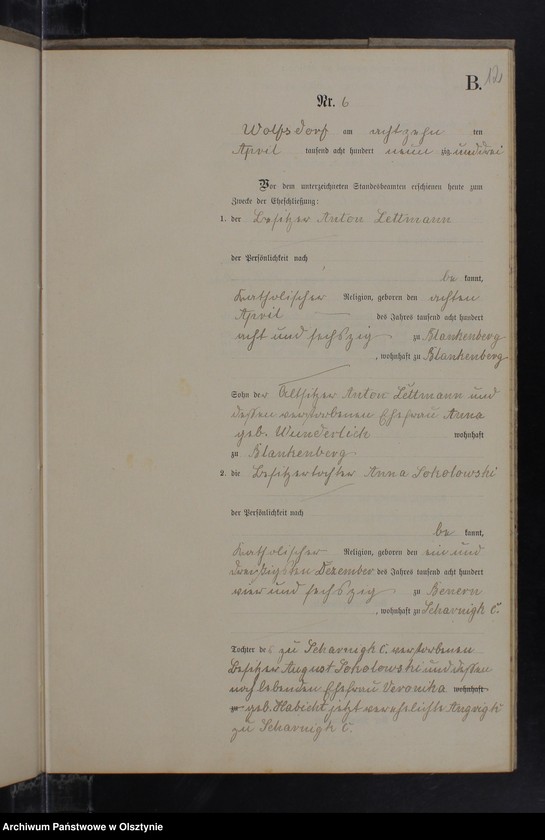 B. 121
Nr. 6
Wolfsdorf am achtzehn ten
April tausend acht hundert neun und drei
Vor dem unterzeichneten Standesbeamten erschienen heute zum
Zwecke der Eheschließung:
1. der Besitzer Anton Lettmann
der Persönlichkeit nach
be kannt,
katholischer Religion, geboren den achten
April des Jahres tausend acht hundert
acht und sechszig zu Blankenberg
, wohnhaft zu Blankenberg
Sohn der Altsitzer Anton Lettmann und
dessen verstorbenen Ehefrau Anna
geb. Wunderlich wohnhaft
zu Blankenberg.
2. die Besitzertochter Anna Sokolowski
der Persönlichkeit nach
be kannt,
katholischer Religion, geboren den ein und
dreißigsten Dezember des Jahres tausend acht hundert
vier und sechszig zu Benern
, wohnhaft zu Scharnigk C.
Tochter des zu Scharnigk C. verstorbenen
Besitzer August Sokolowski und dessen
noch lebenden Ehefrau Veronika wohnhaft
zu geb. Habicht jetzt verehelichte
zu Scharnigk C.
Archiwum Państwowe w Olsztynie